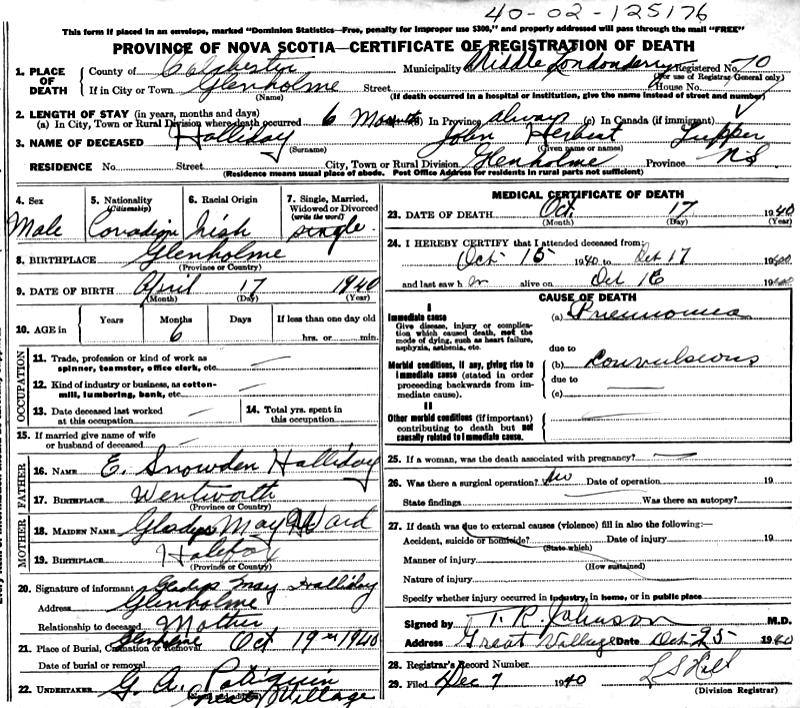 40-02-125176
This form if placed in an envelope, marked "Dominion Statistics—Free, penalty for improper use $300," and properly addressed will pass through the mail "FREE"
PROVINCE OF NOVA SCOTIA—CERTIFICATE OF REGISTRATION OF DEATH
1. PLACE OF DEATH County of Colchester Municipality Middle Londonderry Registered No. 70
(For use of Registrar General only)
If in City or Town Glenholme Street House No.
(Name) (If death occurred in a hospital or institution, give the name instead of street and number)
2. LENGTH OF STAY (in years, months and days)
(a) In City, Town or Rural Division where death occurred 6 Months (b) In Province always (c) In Canada (if immigrant)
3. NAME OF DECEASED Halliday John Herbert Tupper
(Surname) (Given name or names)
RESIDENCE No. Street City, Town or Rural Division Glenholme Province N.S.
(Residence means usual place of abode. Post Office Address for residents in rural parts not sufficient)
4. Sex Male
5. Nationality (Citizenship) Canadian
6. Racial Origin Irish
7. Single, Married, Widowed or Divorced (write the word) single
8. BIRTHPLACE Glenholme
(Province or Country)
9. DATE OF BIRTH April 17 1940
(Month) (Day) (Year)
10. AGE in Years Months Days If less than one day old
6 hrs. or min.
OCCUPATION
11. Trade, profession or kind of work as spinner, teamster, office clerk, etc. —
12. Kind of industry or business, as cotton-mill, lumbering, bank, etc. —
13. Date deceased last worked at this occupation —
14. Total yrs. spent in this occupation —
15. If married give name of wife or husband of deceased —
FATHER
16. NAME E. Snowden Halliday
17. BIRTHPLACE Wentworth
(Province or Country)
MOTHER
18. MAIDEN NAME Gladys May Ward
19. BIRTHPLACE Halifax
(Province or Country)
20. Signature of informant Gladys May Halliday
Address Glenholme
Relationship to deceased Mother
21. Place of Burial, Cremation or Removal Glenholme
Date of burial or removal Oct 19 1940
22. UNDERTAKER G. A. Patriquin
Great Village
MEDICAL CERTIFICATE OF DEATH
23. DATE OF DEATH Oct. 17 1940
(Month) (Day) (Year)
24. I HEREBY CERTIFY that I attended deceased from:
Oct 15 1940 to Oct 17 1940
and last saw h im alive on Oct 16 1940
CAUSE OF DEATH
I
Immediate cause
Give disease, injury or complication which caused death, not the mode of dying, such as heart failure, asphyxia, asthenia, etc.
(a) Pneumonia
due to
Morbid conditions, if any, giving rise to immediate cause (stated in order proceeding backwards from immediate cause).
(b) Convulsions
due to
(c)
II
Other morbid conditions (if important) contributing to death but not causally related to immediate cause.
25. If a woman, was the death associated with pregnancy? —
26. Was there a surgical operation? No Date of operation 19
State findings Was there an autopsy?
27. If death was due to external causes (violence) fill in also the following:—
Accident, suicide or homicide? Date of injury 19
(State which)
Manner of injury
(How sustained)
Nature of injury
Specify whether injury occurred in industry, in home, or in public place
Signed by T. R. Johnson M.D.
Address Great Village Date Oct-25- 1940
28. Registrar's Record Number
29. Filed Dec 7 1940 L S Hill
(Division Registrar)